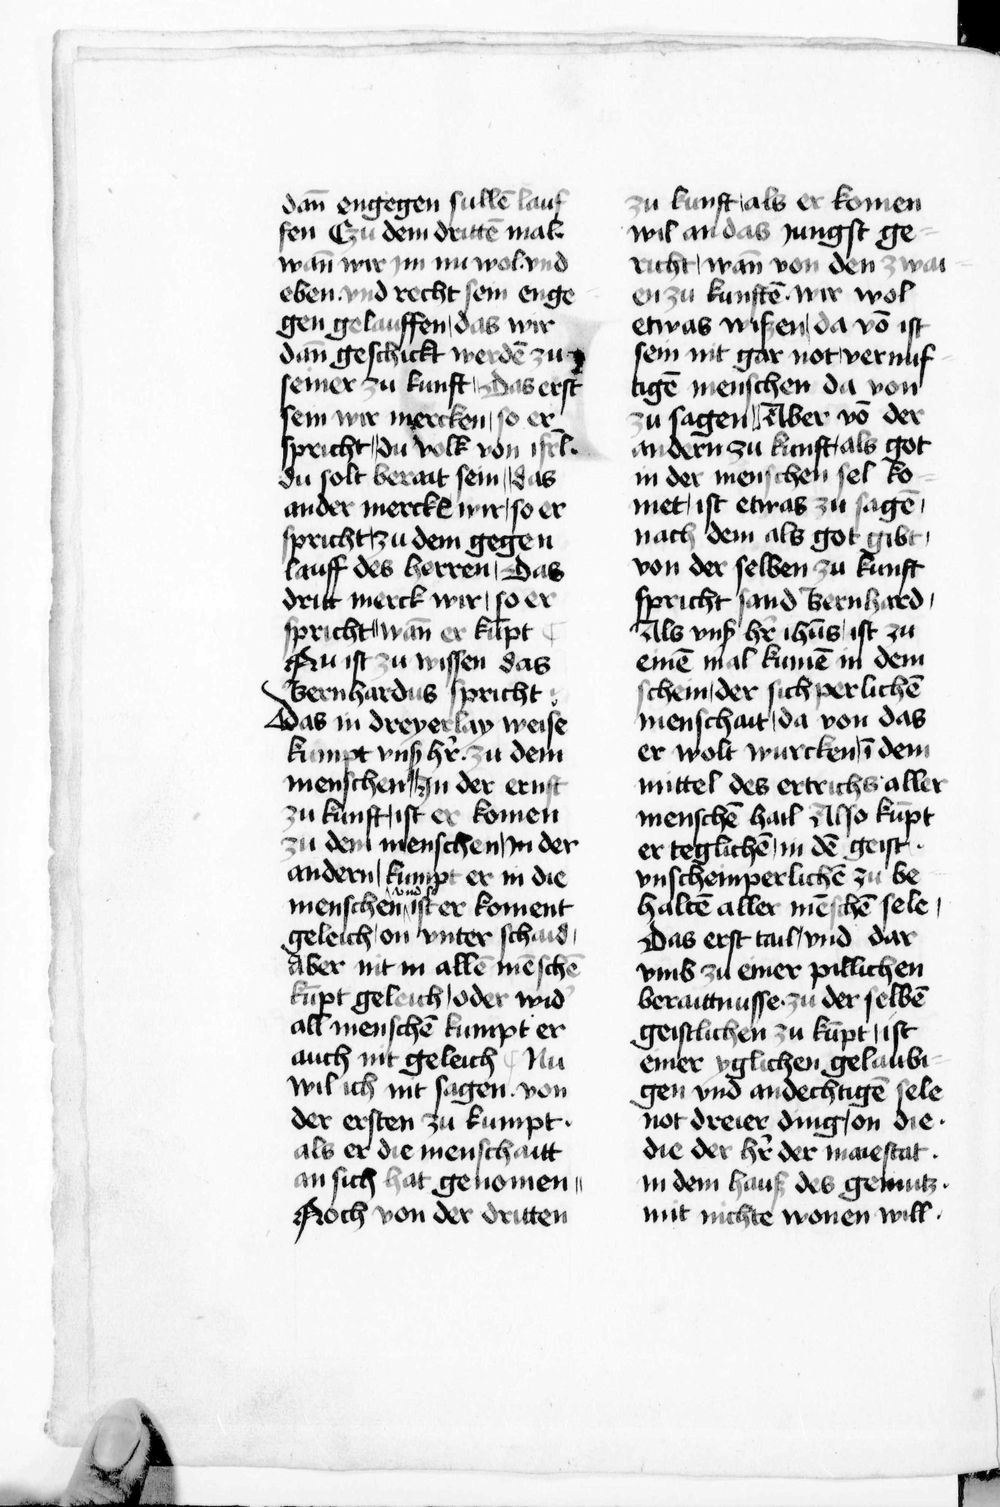 dan̄ engegen sullē lauf
fen Czu dem drittē mal·
wan̄ wir im nu wol·vnd
eben·vnd recht sein enge
gen gelauffen/das wir
dan̄ geschickt werdē zu
seiner zu kunft/Das erst
sein wir mercken/so er
spricht//du volk von isrl̄·
du solt berait sein//das
ander merckē wir/so er
spricht/zu dem gegen
lauff des herren/Das
dritt merck wir/so er
spricht//wan̄ er kūpt
Nu ist zu wissen das
Bernhardus spricht
Das in dreyerlay weise
kumpt vnß hr̄·zu dem
menschen//In der ernst
zu kunft/ist er komen
zu dem menschen/in der
andern/kumpt er in die
vnd so
menschen/ist er koment
geleich/on vnter schaid/
Aber nit in allē mēschē
kūpt geleich/oder wid
all menschē kumpt er
auch nit geleich Nu
wil ich nit sagen·von
der ersten zu kumpt·
als er die menschaitt
an sich hat genomen//
Noch von der dritten
zu kunft/als er komen
wil an das jungst ge=
richt/wan̄ von den zwai=
en zu kunftē·wir wol
etwas wißen/da vō ist
sein nit gar not/vernuf=
tigē menschen da von
zu sagen//Aber vō der
andern̄ zu kunft/als got
in der menschen sel ko=
met/ist etwas zu sagē/
nach dem als got gibt/
von der selben zu kunft
spricht sand Bernhard/
Als vnß hr̄ ihūs/ist zu
einē mal kumē in dem
schein/der sichperlichē
menschait/da von das
er wolt wurcken/ī dem
mittel des ertrichs aller
menschē hail Also kūpt
er teglichē/in dē geist·
vnscheinperlichē zu be=
haltē aller mēschē sele/
Das erst tail/vnd dar
vmb zu einer pillichen
beraittnusse·zu der selbē
geistlichen zu kūpt/ist
einer yglichen gelaubi=
gen vnd andechtigē sele
not dreier ding/on die·
die der hr̄ der maiestat·
in dem hauß des gemutz·
mit nichte wonen will·